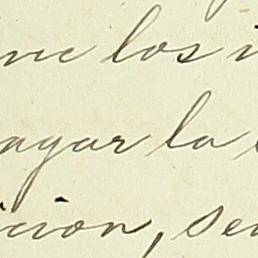 los
agar la
icion, se